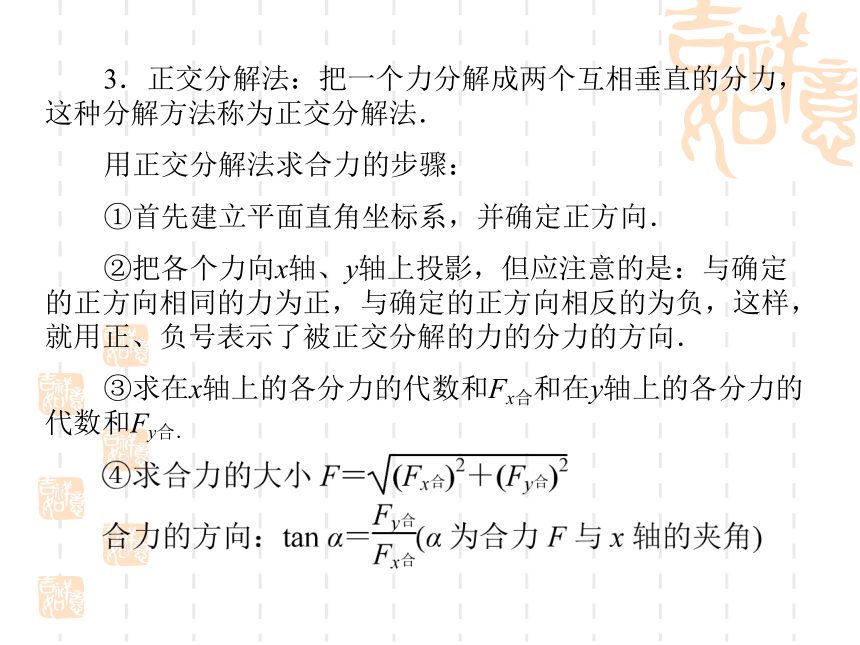 吉祥如意
3．正交分解法：把一个力分解成两个互相垂直的分力，
这种分解方法称为正交分解法．
用正交分解法求合力的步骤：
①首先建立平面直角坐标系，并确定正方向．
②把各个力向x轴、y轴上投影，但应注意的是：与确定
的正方向相同的力为正，与确定的正方向相反的为负，这样，
就用正、负号表示了被正交分解的力的分力的方向．
③求在x轴上的各分力的代数和Fx合和在y轴上的各分力的
代数和Fy合．
④求合力的大小 F＝√(Fx合)²＋(Fy合)²
合力的方向：tan α＝Fy合/Fx合(α 为合力 F 与 x 轴的夹角)
吉祥如意
吉祥如意
吉祥如意
吉祥如意
吉祥如意
吉祥如意